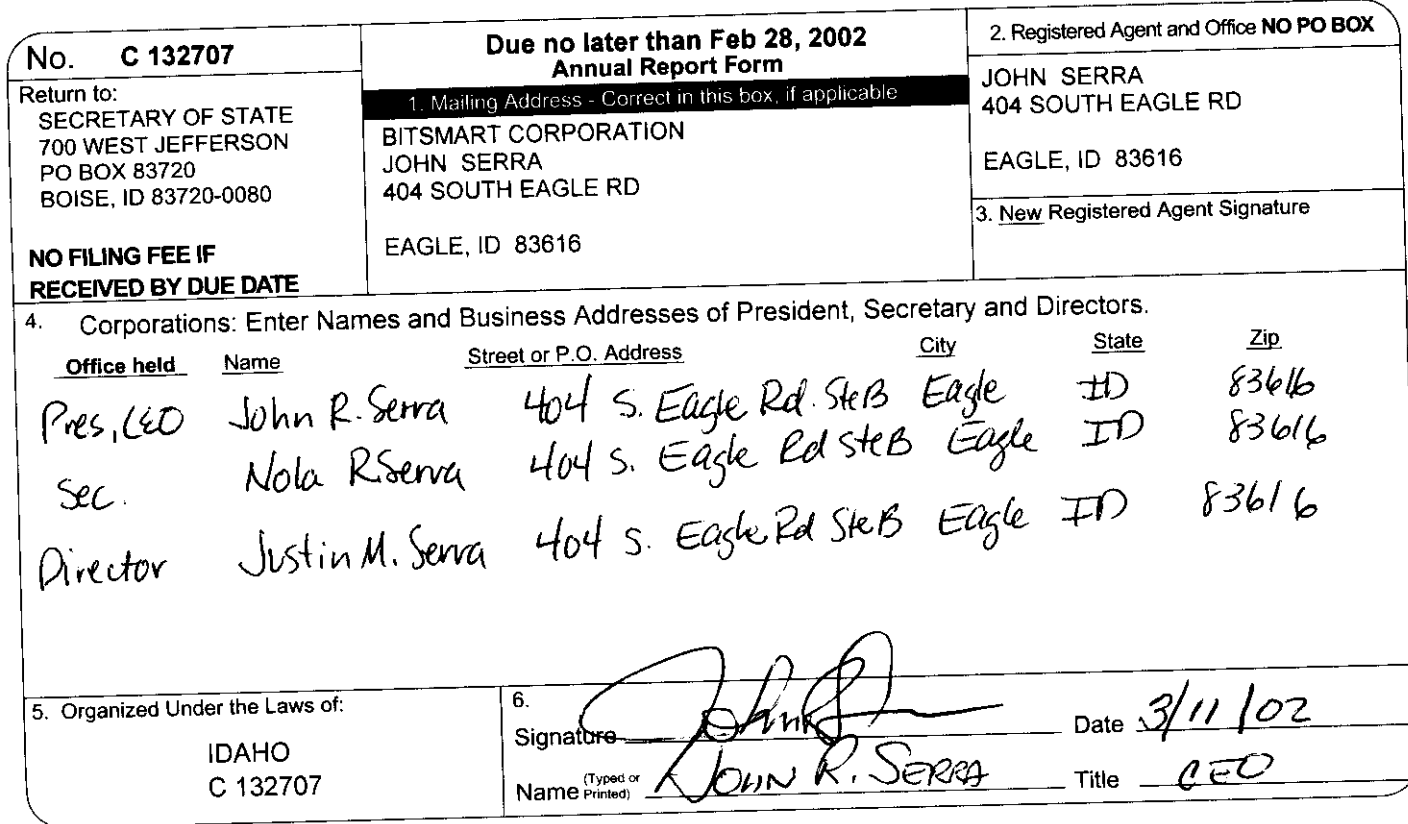 No. C 132707
Return to:
SECRETARY OF STATE
700 WEST JEFFERSON
PO BOX 83720
BOISE, ID 83720-0080
NO FILING FEE IF
RECEIVED BY DUE DATE
Due no later than Feb 28, 2002
Annual Report Form
1. Mailing Address - Correct in this box, if applicable
BITSMART CORPORATION
JOHN SERRA
404 SOUTH EAGLE RD
EAGLE, ID 83616
2. Registered Agent and Office NO PO BOX
JOHN SERRA
404 SOUTH EAGLE RD
EAGLE, ID 83616
3. New Registered Agent Signature
4. Corporations: Enter Names and Business Addresses of President, Secretary and Directors.
Office held Name Street or P.O. Address City State Zip
Pres, CEO John R. Serra 404 S. Eagle Rd. Ste B Eagle ID 83616
Sec. Nola R Serra 404 S. Eagle Rd Ste B Eagle ID 83616
Director Justin M. Serra 404 S. Eagle Rd Ste B Eagle ID 83616
5. Organized Under the Laws of:
IDAHO
C 132707
6.
Signature John R Date 3/11/02
Name (Typed or Printed) JOHN R. SERRA Title CEO